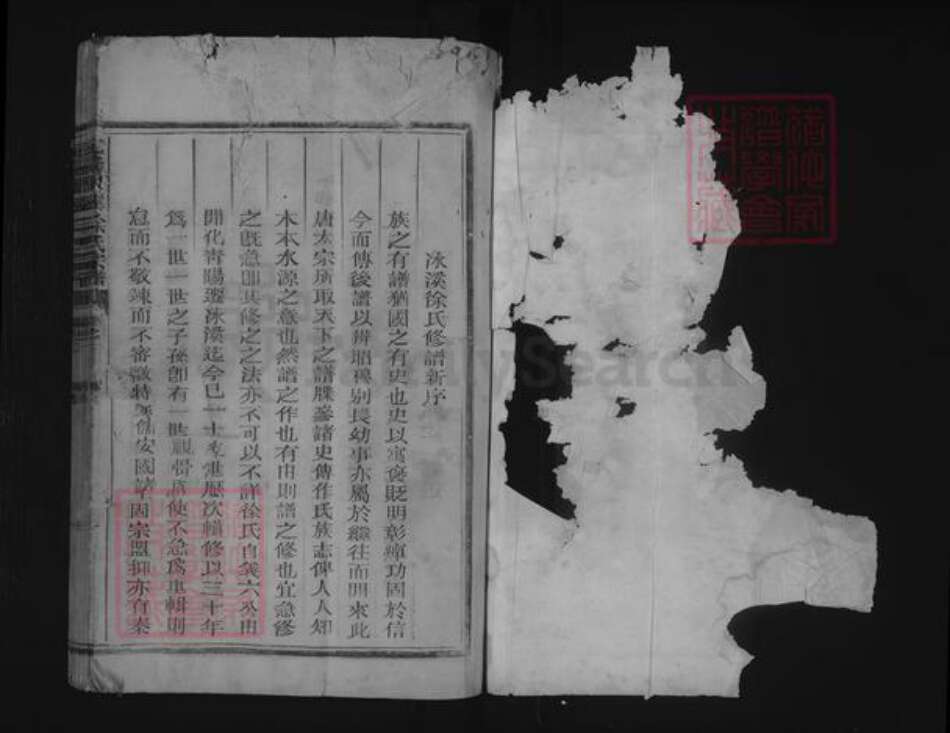 冰溪徐氏修譜新序
族之有譜猶國之有史也史以寓褒貶明彰癉功固於信
今而傳後譜以辨昭穆别長幼事亦屬於繼往而開來此
唐太宗所取天下之譜牒參諸史傳作氏族志俾人人知
木本水源之意也然譜之作也有由則譜之修也宜急修
之既急即其修之之法亦不可以不詳徐氏自義六公由
開化青陽遷冰溪迄今已二十 世歷次輯修以三十年
爲一世一世之子孫卽有一世 使不急爲重輯則
怠而不敬竦而不審 特 安國諸 固宗盟抑亦有忝
FamilySearch